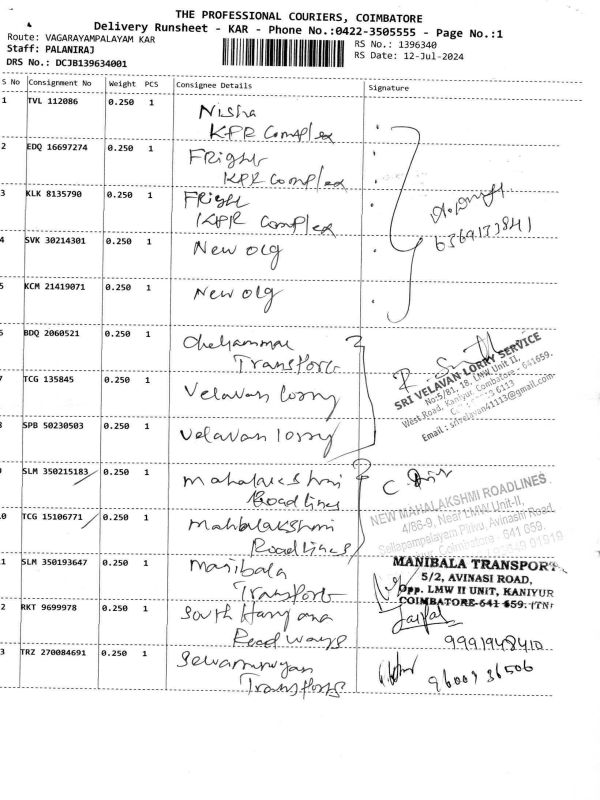 THE PROFESSIONAL COURIERS, COIMBATORE
Delivery Runsheet - KAR - Phone No.:0422-3505555 - Page No.:1
Route: VAGARAYAMPALAYAM KAR
Staff: PALANIRAJ
DRS No.: DCJB139634001
RS No.: 1396340
RS Date: 12-Jul-2024
S No Consignment No Weight PCS Consignee Details Signature
1 TVL 112086 0.250 1 Nisha
KPR Complex
2 EDQ 16697274 0.250 1 FRight
KPR Complex
3 KLK 8135790 0.250 1 FRight
KPR Complex
6369173841
4 SVK 30214301 0.250 1 New olg
5 KCM 21419071 0.250 1 New olg
6 BDQ 2060521 0.250 1 Chellammal
Transport
7 TCG 135845 0.250 1 Velavan lorry
SRI VELAVAN LORRY SERVICE
No:5/81, 18, LMW Unit II,
West Road, Kaniyur, Coimbatore - 641659.
6113
Email : srivelavan41113@gmail.com
8 SPB 50230503 0.250 1 Velavan lorry
9 SLM 350215183 0.250 1 Mahalakshmi
Roadlines
NEW MAHALAKSHMI ROADLINES
4/86-9, Near LMW Unit-II,
Sellapampalayam Pirivu, Avinashi Road,
Coimbatore - 641 659.
10 TCG 15106771 0.250 1 Mahalakshmi
Roadlines
11 SLM 350193647 0.250 1 Manibala
Transport
MANIBALA TRANSPORT
5/2, AVINASI ROAD,
Opp. LMW II UNIT, KANIYUR
COIMBATORE-641 659. (TN)
12 RKT 9699978 0.250 1 South Haryana
Roadways
9991948410
13 TRZ 270084691 0.250 1
Transports
9600736506